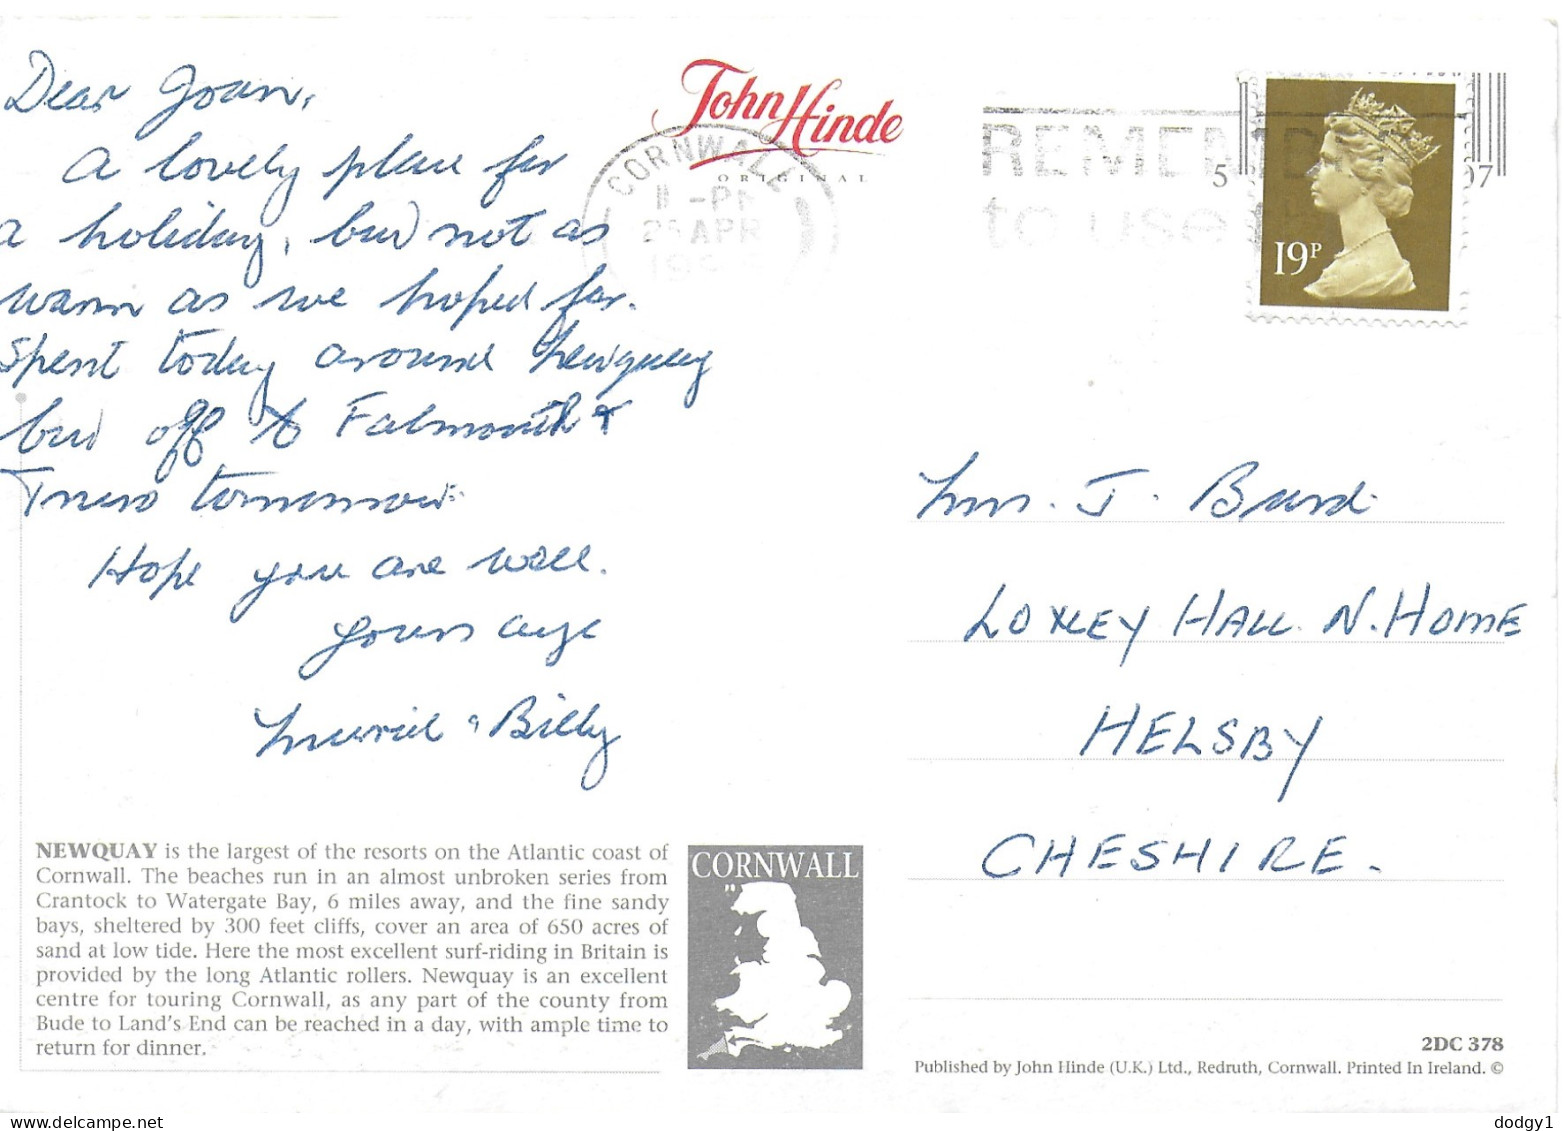 Dear Joan,
A lovely place for
a holiday, but not as
warm as we hoped for.
Spent today around Newquay
but off to Falmouth &
Truro tomorrow.
Hope you are well.
Yours aye
Muriel & Billy
John Hinde
ORIGINAL
CORNWALL
APR
REMEM
to use
5
07
19P
Mrs. J. Burd.
LOXLEY HALL N. HOME
HELSBY
CHESHIRE.
NEWQUAY is the largest of the resorts on the Atlantic coast of
Cornwall. The beaches run in an almost unbroken series from
Crantock to Watergate Bay, 6 miles away, and the fine sandy
bays, sheltered by 300 feet cliffs, cover an area of 650 acres of
sand at low tide. Here the most excellent surf-riding in Britain is
provided by the long Atlantic rollers. Newquay is an excellent
centre for touring Cornwall, as any part of the county from
Bude to Land's End can be reached in a day, with ample time to
return for dinner.
CORNWALL
2DC 378
Published by John Hinde (U.K.) Ltd., Redruth, Cornwall. Printed In Ireland. ©
dodgy1